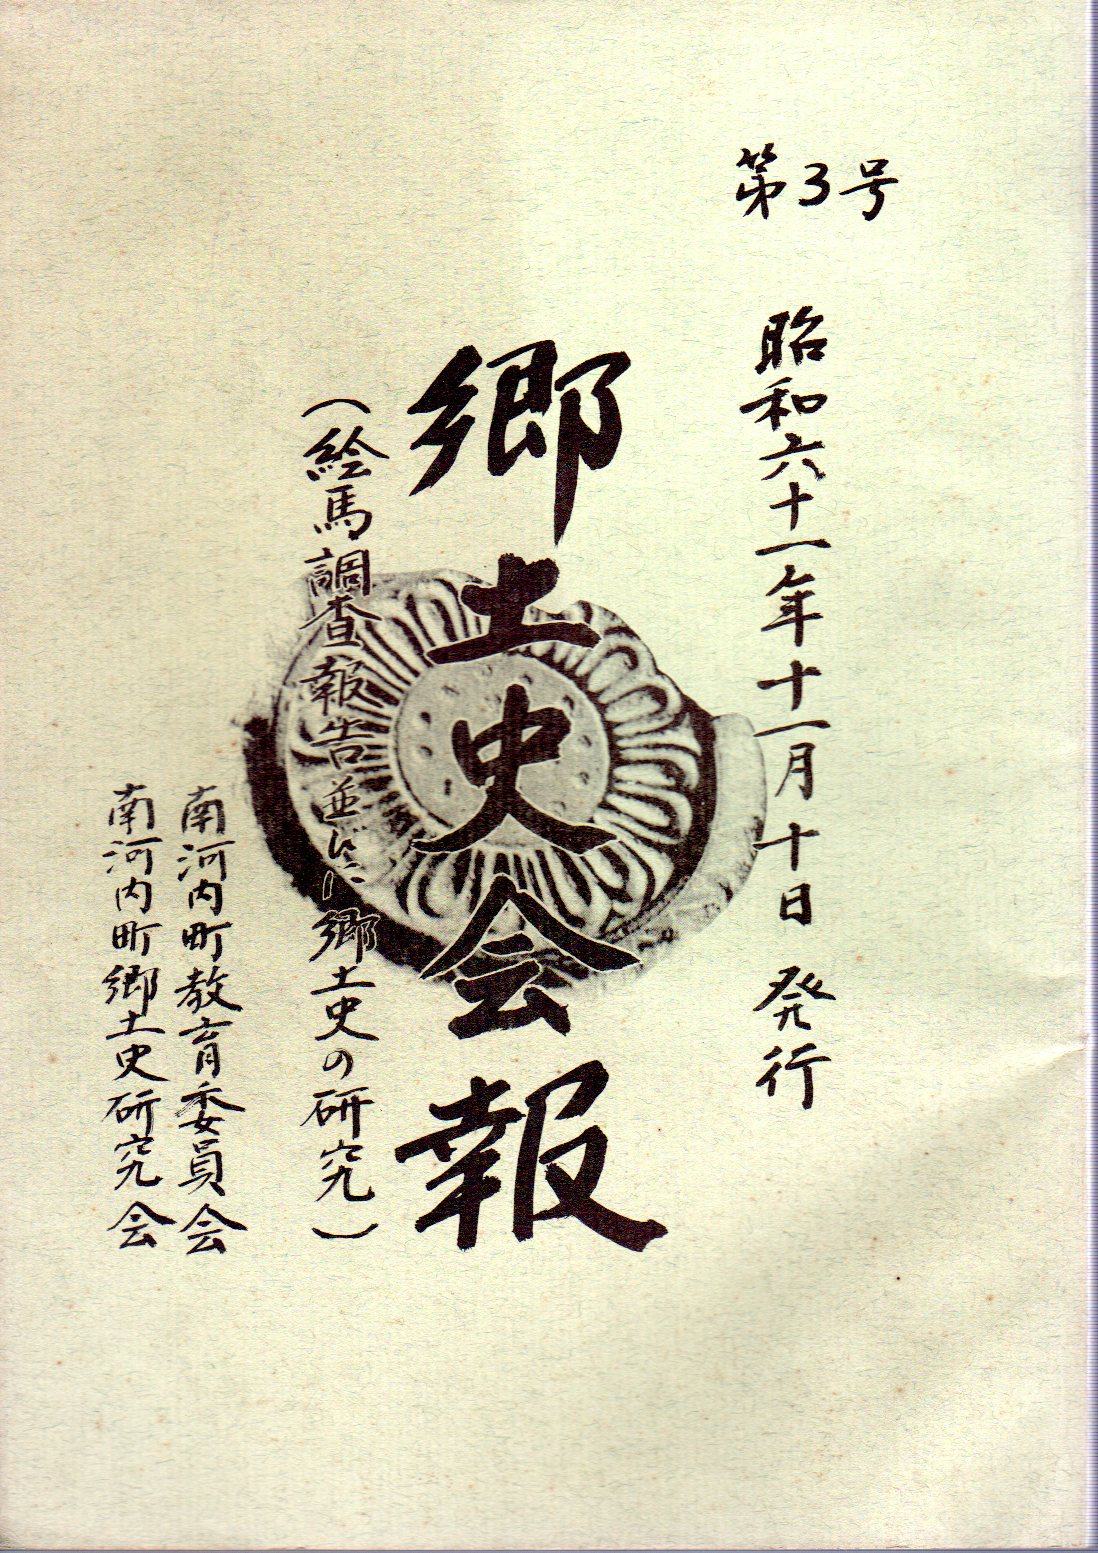 第3号
昭和六十一年十一月十日 発行
郷土史会報
(絵馬調査報告並びに郷土史の研究)
南河内町教育委員会
南河内町郷土史研究会